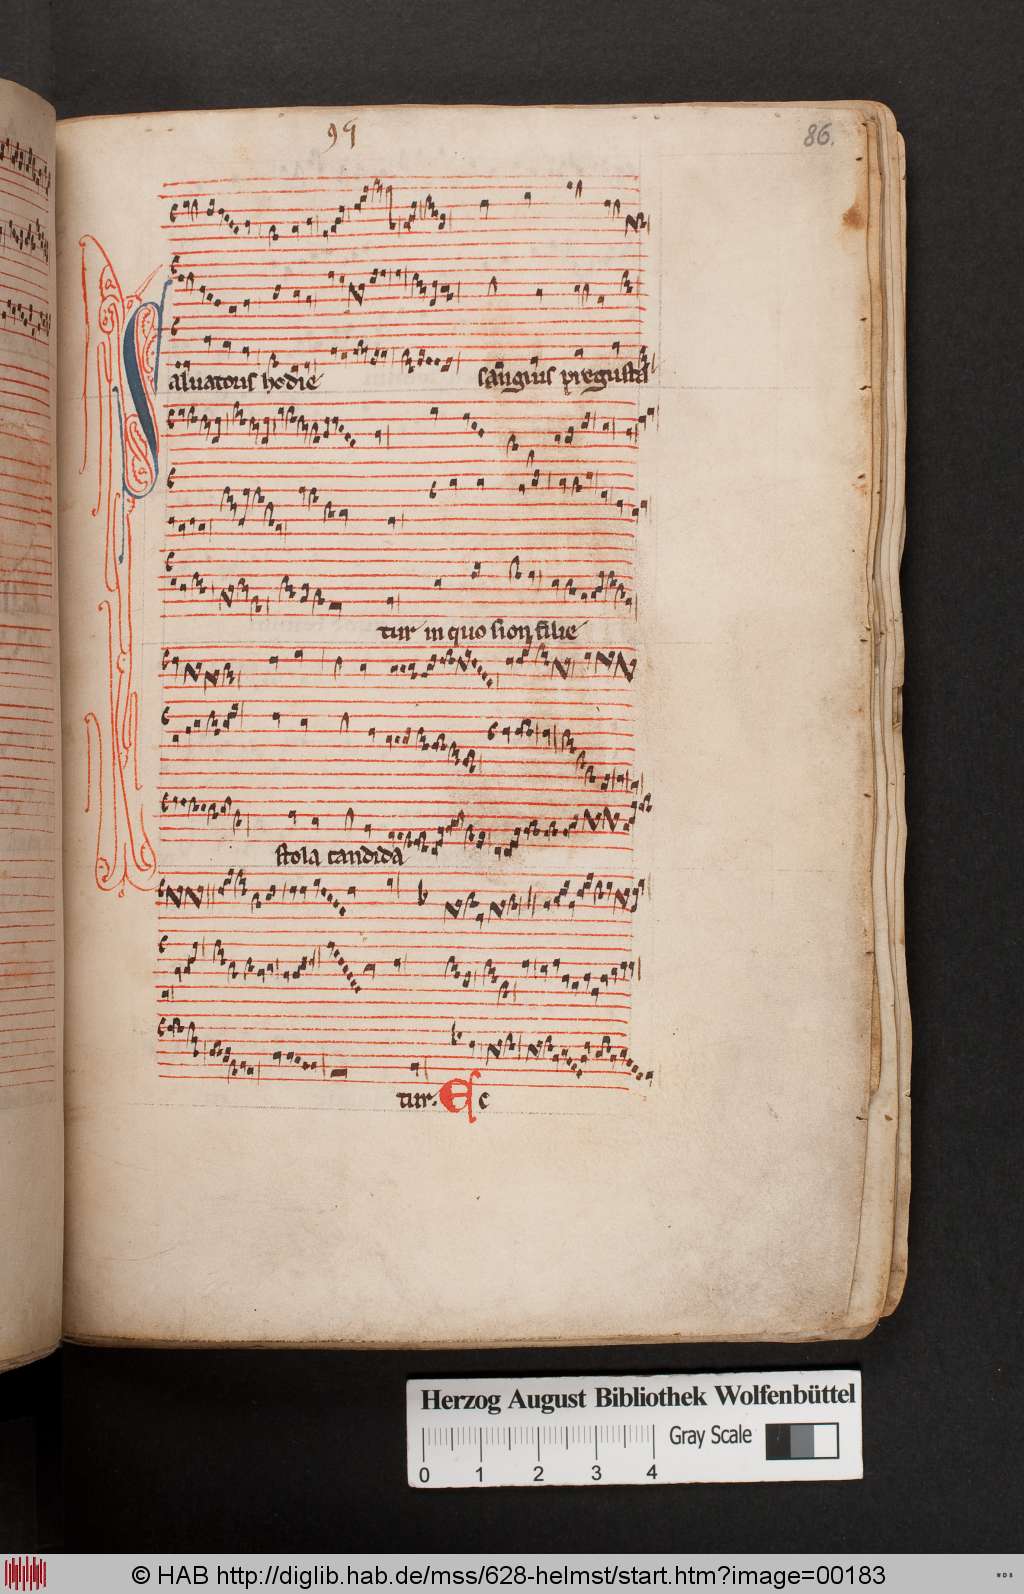 99
86.
Saluatoris hodie sanguis pregusta
tur in quo sion filie
stola candida
tur. Ec
Herzog August Bibliothek Wolfenbüttel
Gray Scale
0 1 2 3 4
© HAB http://diglib.hab.de/mss/628-helmst/start.htm?image=00183